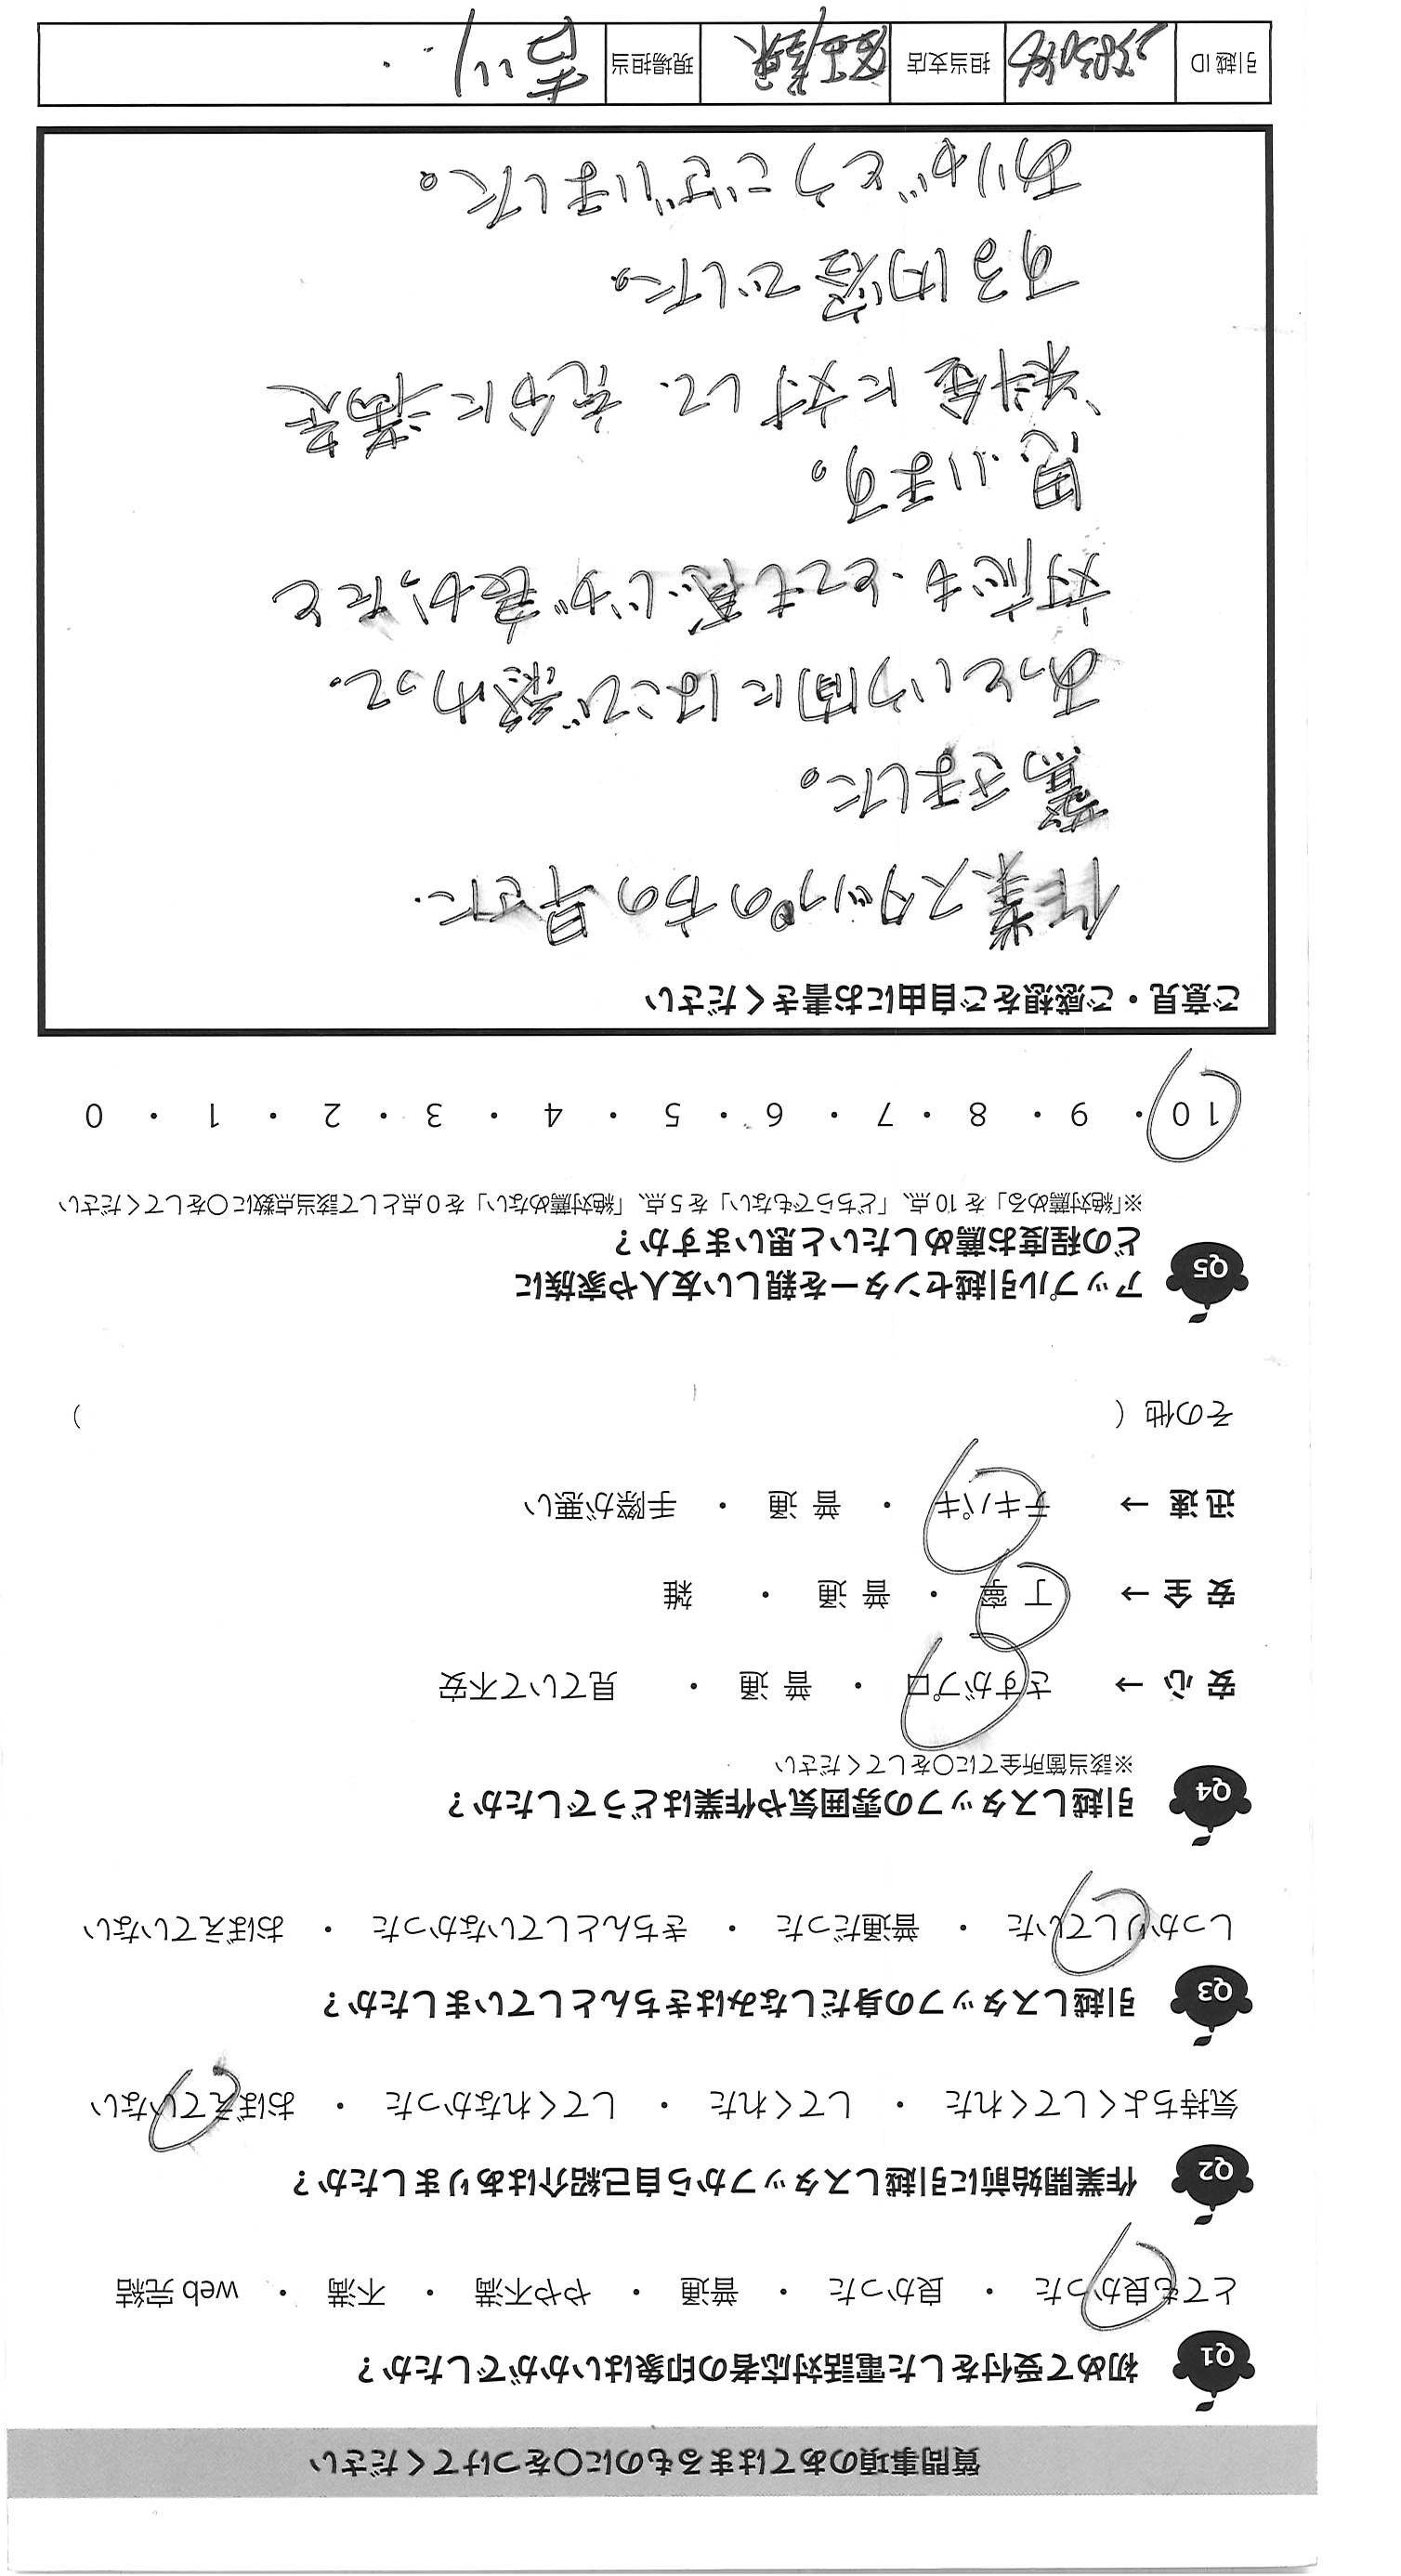 質問事項のあてはまるものに○をつけてください
Q1 初めて受付をした電話対応者の印象はいかがでしたか？
とても良かった ・ 良かった ・ 普通 ・ やや不満 ・ 不満 ・ web 完結
Q2 作業開始前に引越しスタッフから自己紹介はありましたか？
気持ちよくしてくれた ・ してくれた ・ してくれなかった ・ おぼえていない
Q3 引越しスタッフの身だしなみはきちんとしていましたか？
しっかりしていた ・ 普通だった ・ きちんとしていなかった ・ おぼえていない
Q4 引越しスタッフの雰囲気や作業はどうでしたか？
※該当箇所全てに○をしてください
安 心 → さすがプロ ・ 普 通 ・ 見ていて不安
安 全 → 丁 寧 ・ 普 通 ・ 雑
迅 速 → テキパキ ・ 普 通 ・ 手際が悪い
その他（ ）
Q5 アップル引越センターを親しい友人や家族に
どの程度お薦めしたいと思いますか？
※「絶対薦める」を 10 点、「どちらでもない」を 5 点、「絶対薦めない」を 0 点として該当点数に○をしてください
10 ・ 9 ・ 8 ・ 7 ・ 6 ・ 5 ・ 4 ・ 3 ・ 2 ・ 1 ・ 0
ご意見・ご感想をご自由にお書きください
作業スタッフの方の早さに、
驚きました。
あっという間にはこび終わって、
対応も、とても感じが良かったと
思います。
料金に対して、充分に満足
する内容でした。
ありがとうございました。
引越 ID 担当支店 現場担当 吉川